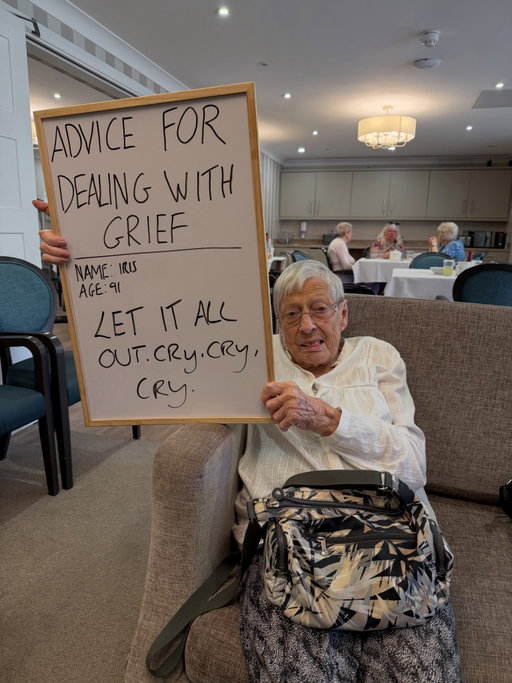 ADVICE FOR
DEALING WITH
GRIEF
NAME: IRIS
AGE: 91
LET IT ALL
OUT. CRY. CRY.
CRY.